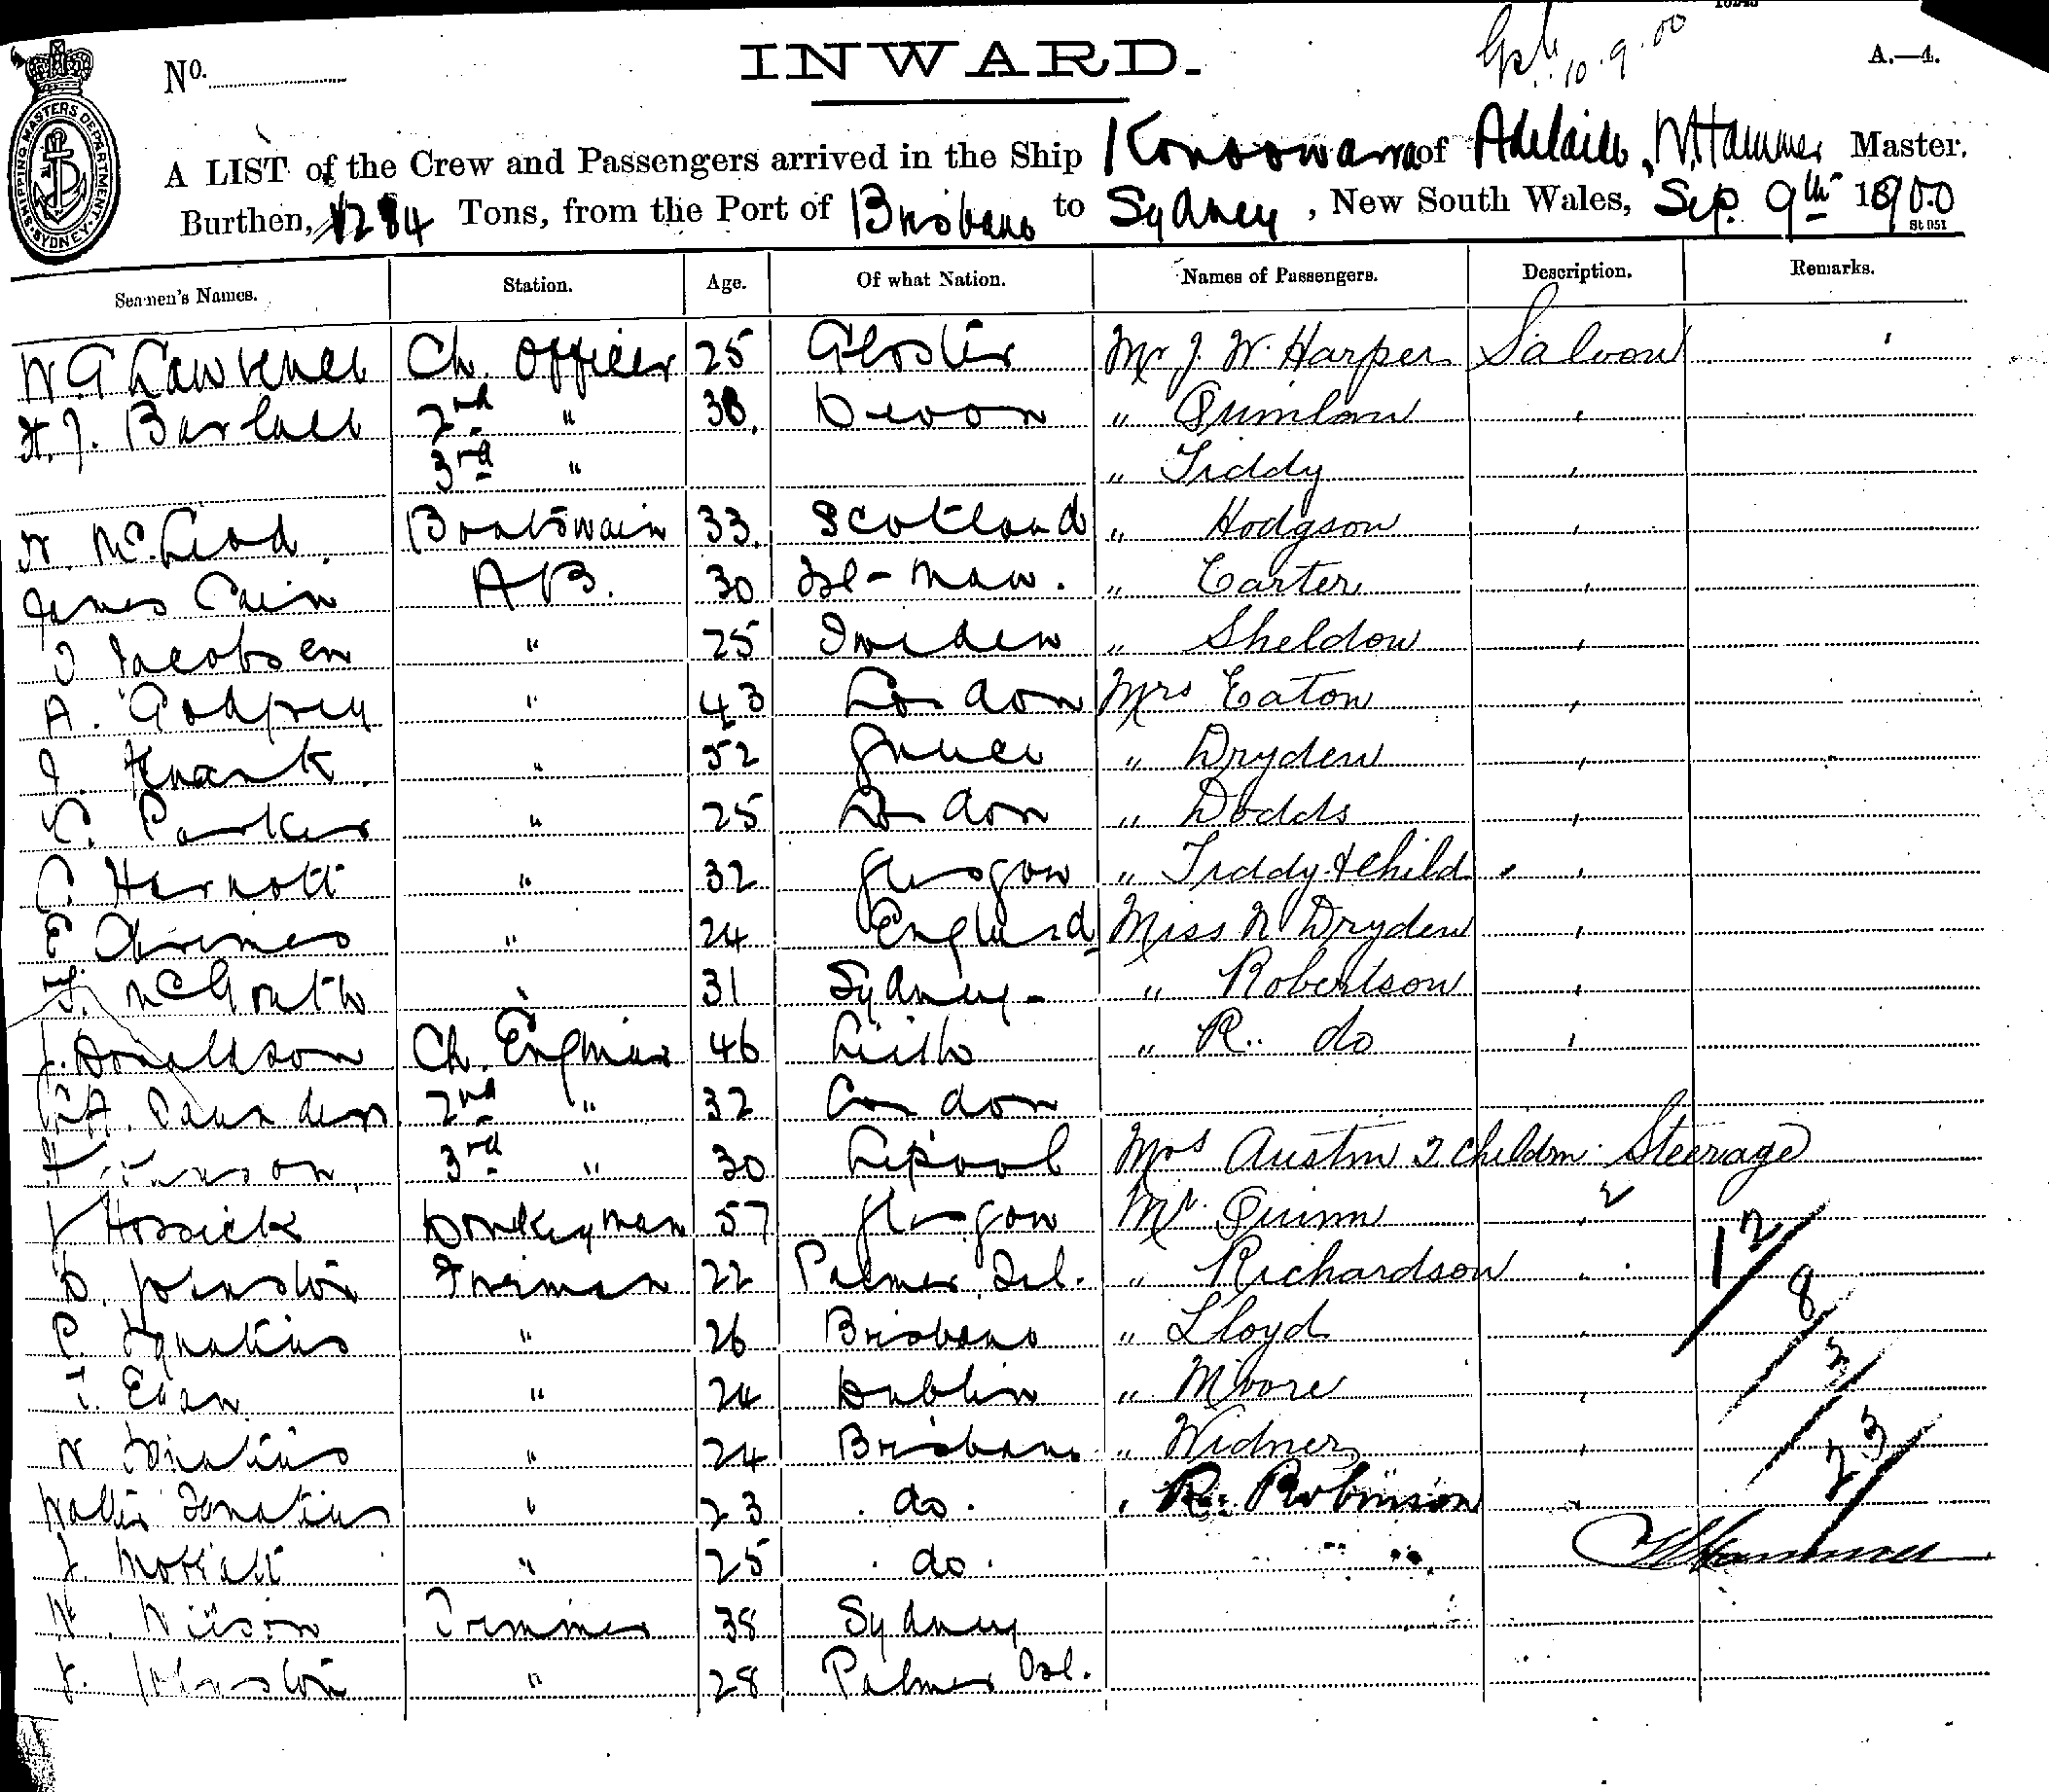 INWARD.
No.
10.9.00
A.—4.
SHIPPING MASTERS DEPARTMENT SYDNEY
A LIST of the Crew and Passengers arrived in the Ship Konoowarra of Adelaide, W. Hammer Master.
Burthen, 1284 Tons, from the Port of Brisbane to Sydney, New South Wales, Sep. 9th 1900
St 051
Seamen's Names. Station. Age. Of what Nation. Names of Passengers. Description. Remarks.
W G Lawrence Ch. Officer 25 Gloster Mr J. W. Harper Saloon
H. J. 2nd " 38. Devon " Quinlan "
3rd " " Tiddy "
N. McLeod. Boatswain 33. Scotland " Hodgson "
James Cain AB. 30 Isl-Man. " Carter "
J Jacobsen " 25 Sweden " Sheldon "
A. Godfrey " 43 London Mrs Eaton "
J. " 52 Greece " Dryden "
C. Parker " 25 London " Dodds "
C. Harnott " 32 Glasgow " Tiddy & child "
E Grimes " 24 England Miss N Dryden "
T. McGrath " 31 Sydney - " Robertson "
J. Donaldson Ch. Engineer 46 Leith " R.. do "
A. Saunders 2nd " 32 London
3rd " 30 Lipool Mrs Austin 2 Children Steerage
J Hossick Donkeyman 57 Glasgow Mr. Quinn "
D. Johnston Fireman 22 Palmer Isl. " Richardson "
P. Ignatius " 26 Brisbane " Lloyd "
T. Egan " 24 Dublin " Moore "
W Ignatius " 24 Brisbane " Widner "
Walter Ignatius " 23 do. " R. Robinson "
J. Moffatt " 25 do.
W. Wilson Trimmer 38 Sydney
J. Johnston " 28 Palmer Isl.
12
8
3
23
W Hammer